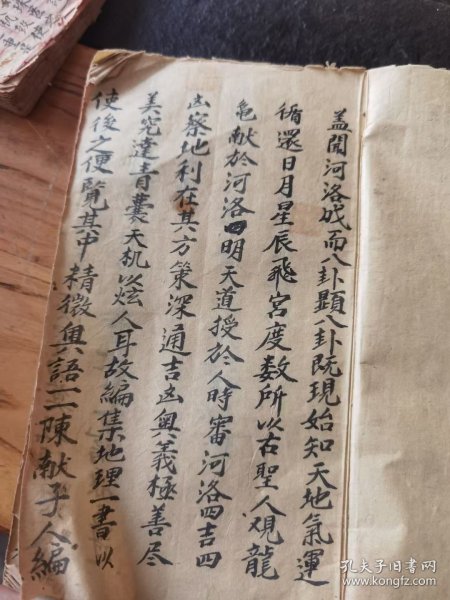 盖闻河洛成而八卦顯八卦既現始知天地氣運
循還日月星辰飛宮度数所以古聖人观龍
龟献於河洛四明天道授於人時審河洛四吉四
凶察地利在其方策深通吉凶奥義極善尽
美究達青囊天机以炫人耳故編集地理一書以
使後之便覧其中精微奥語一一陳献于人編
孔夫子旧书网
kongfz.com